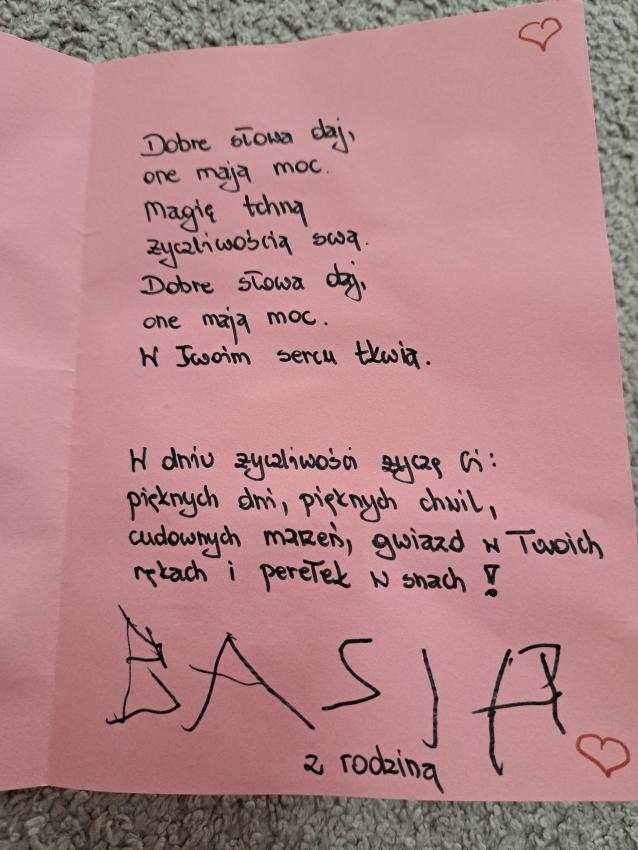 Dobre słowa daj,
one mają moc.
Magię tchną
życzliwością swą.
Dobre słowa daj,
one mają moc.
W Twoim sercu tkwią.
W dniu życzliwości życzę Ci:
pięknych dni, pięknych chwil,
cudownych marzeń, gwiazd w Twoich
rękach i perełek w snach!
BASIA
z rodziną